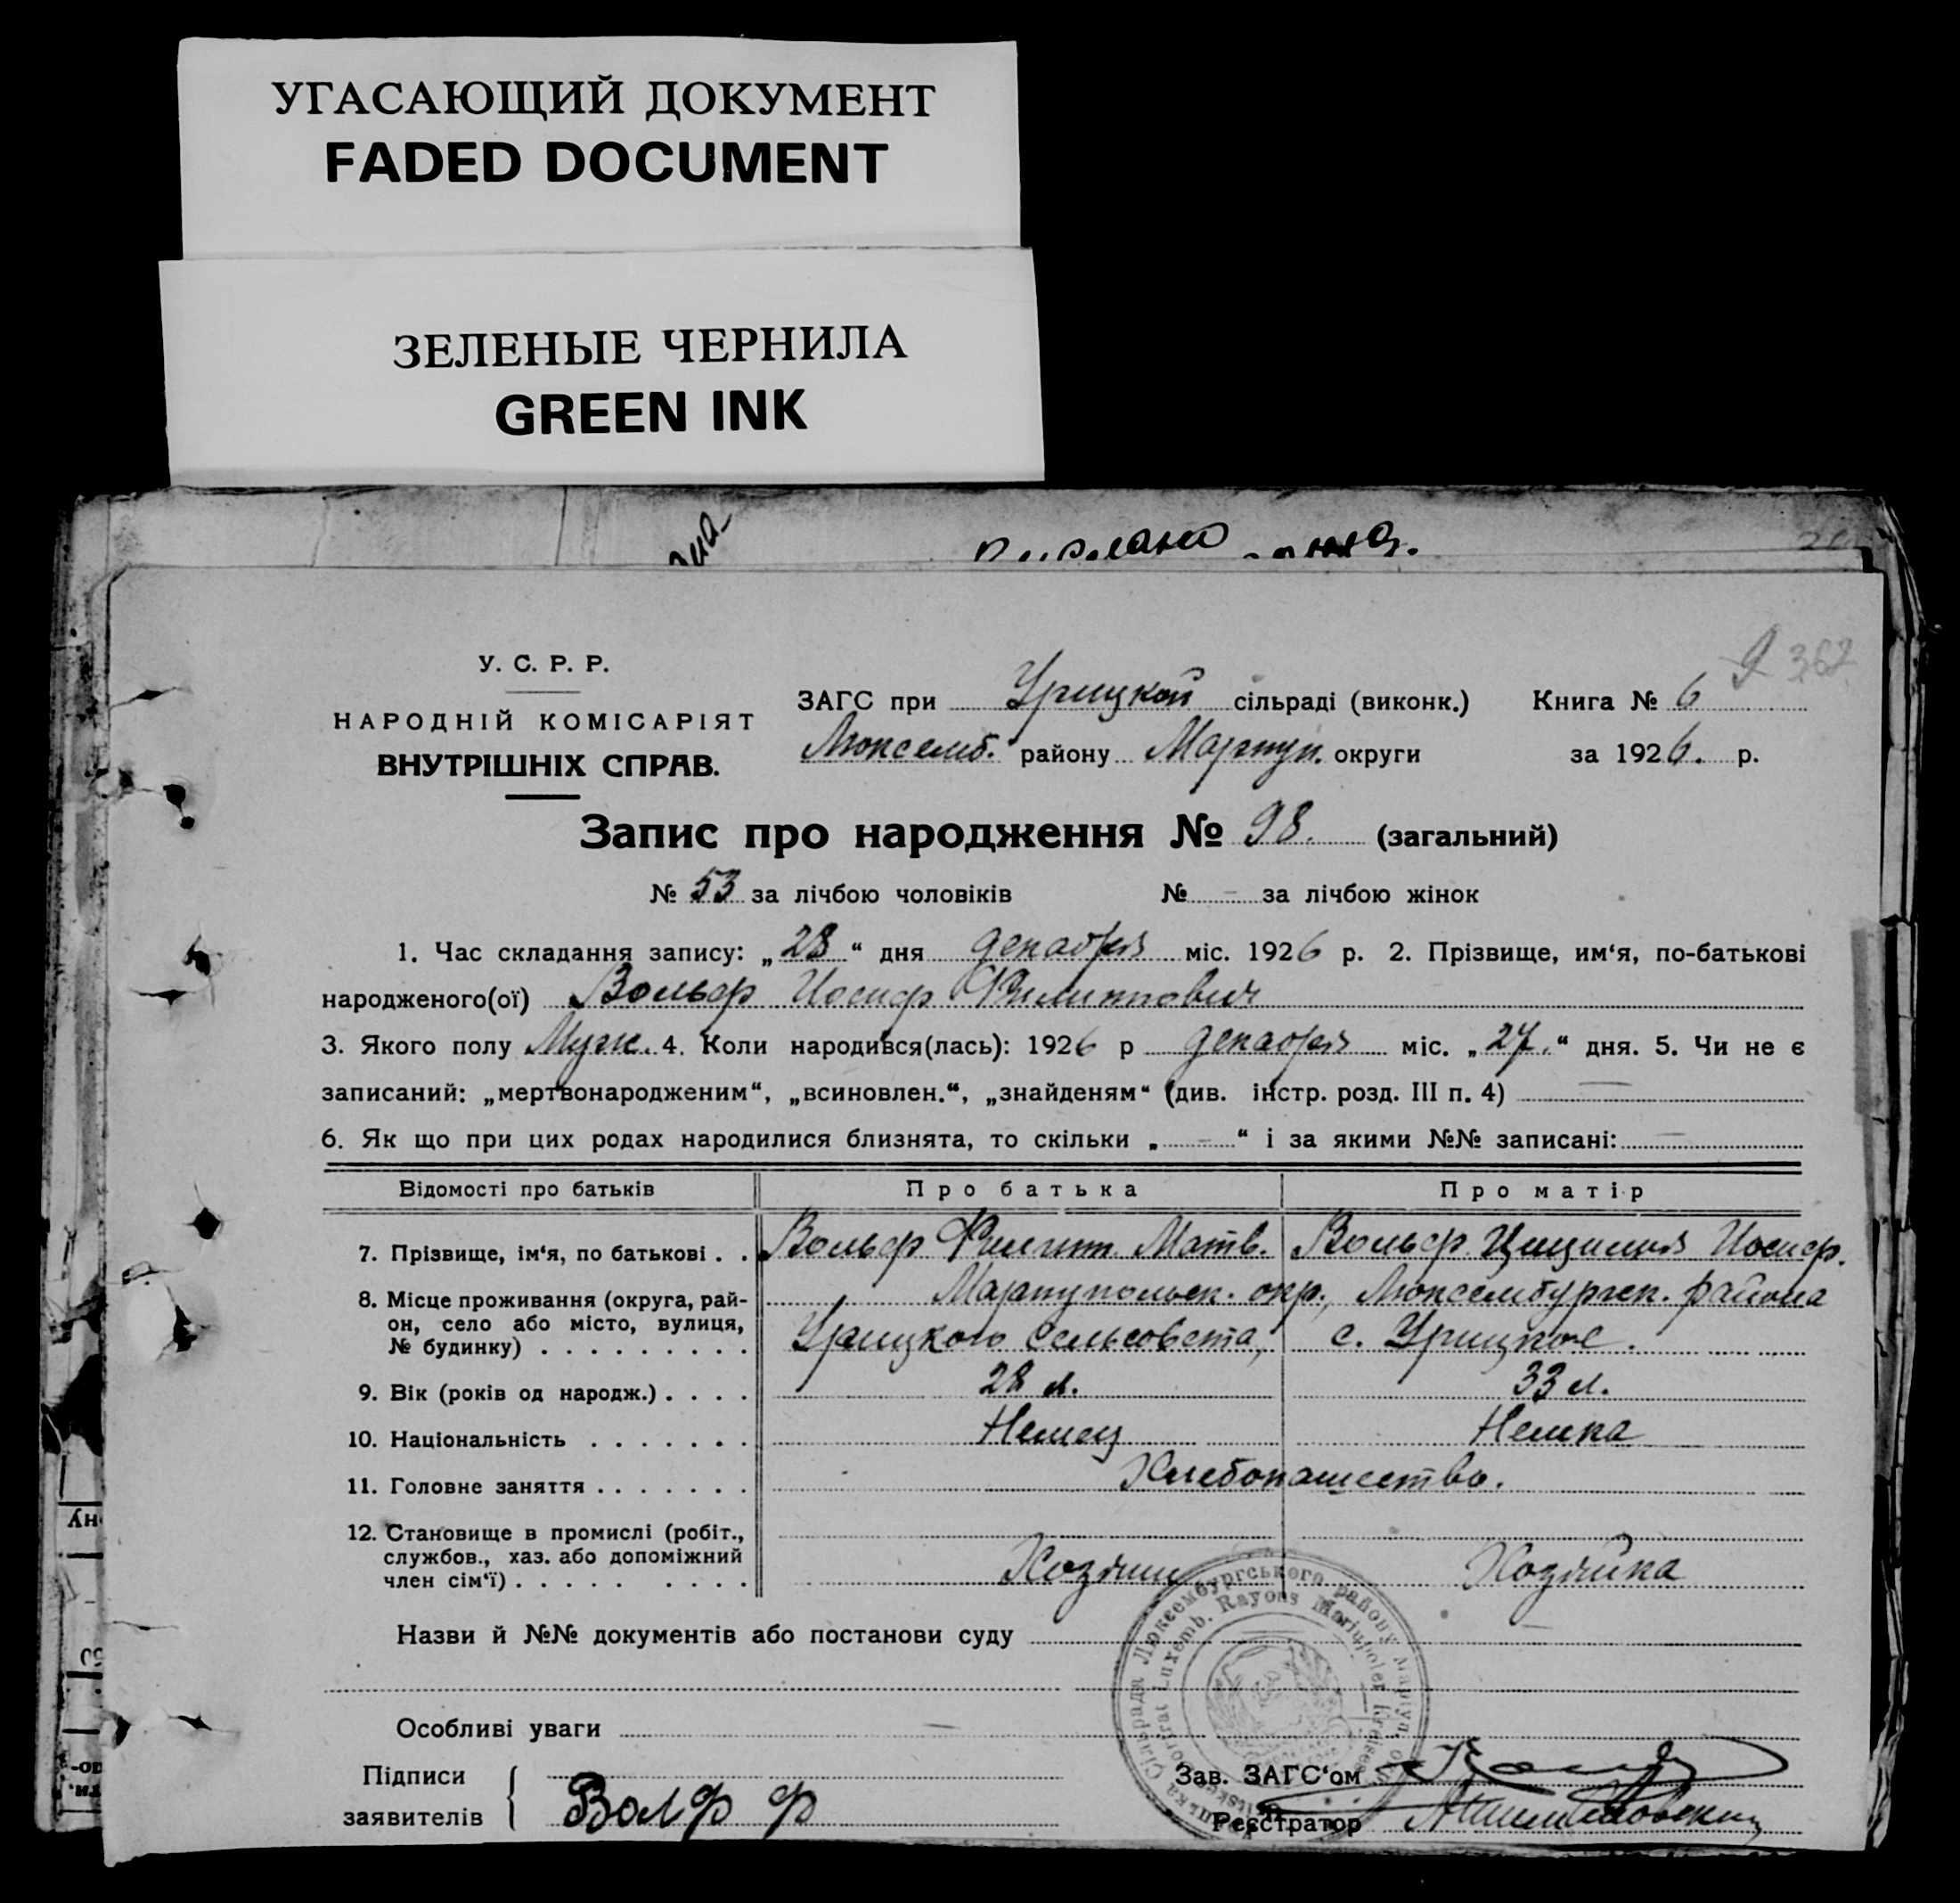 УГАСАЮЩИЙ ДОКУМЕНТ
FADED DOCUMENT
ЗЕЛЕНЫЕ ЧЕРНИЛА
GREEN INK
У. С. Р. Р.
НАРОДНІЙ КОМІСАРІЯТ
ВНУТРІШНІХ СПРАВ.
ЗАГС при Урицкой сільраді (виконк.) Книга № 6
Люксемб. району Мариуп. округи за 1926. р.
9 362
Запис про народження № 98. (загальний)
№ 53 за лічбою чоловіків № - за лічбою жінок
1. Час складання запису: „28“ дня декабря міс. 1926 р. 2. Прізвище, им‘я, по-батькові
народженого(ої) Вольф Иосиф Филиппович
3. Якого полу Муж. 4. Коли народився(лась): 1926 р декабря міс. „27.“ дня. 5. Чи не є
записаний: „мертвонародженим“, „всиновлен.“, „знайденям“ (див. інстр. розд. III п. 4) —
6. Як що при цих родах народилися близнята, то скільки „-“ і за якими №№ записані: —
Відомості про батьків Про батька Про матір
7. Прізвище, ім‘я, по батькові . . Вольф Филипп Матв. Вольф Цицилия Иосиф.
8. Місце проживання (округа, рай- Мариупольск. окр., Люксембургск. района
он, село або місто, вулиця, Урицкого сельсовета, с. Урицкое.
№ будинку) . . . . . . . . .
9. Вік (років од народж.) . . . . 28 л. 33 л.
10. Національність . . . . . . . Немец Немка
11. Головне заняття . . . . . . . Хлебопашество.
12. Становище в промислі (робіт.,
службов., хаз. або допоміжний Хозяин Хозяйка
член сім‘ї) . . . . . . . . .
Назви й №№ документів або постанови суду —
Особливі уваги —
Підписи
заявителів Волф Ф
Зав. ЗАГС‘ом
Реєстратор
Сільрада Люксембургського району Маріуп.
Luxemb. Rayons Mariupoler Kreises